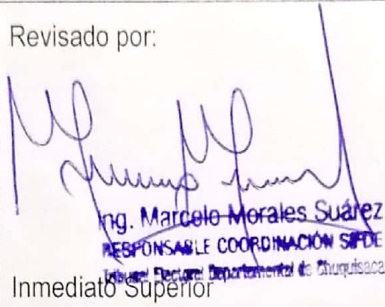 Revisado por:
Ing. Marcelo Morales Suárez
RESPONSABLE COORDINACIÓN SIFDE
Tribunal Electoral Departamental de Chuquisaca
Inmediato Superior